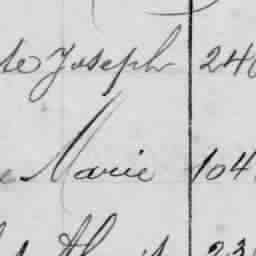 te Joseph 240
e Marie 104
23